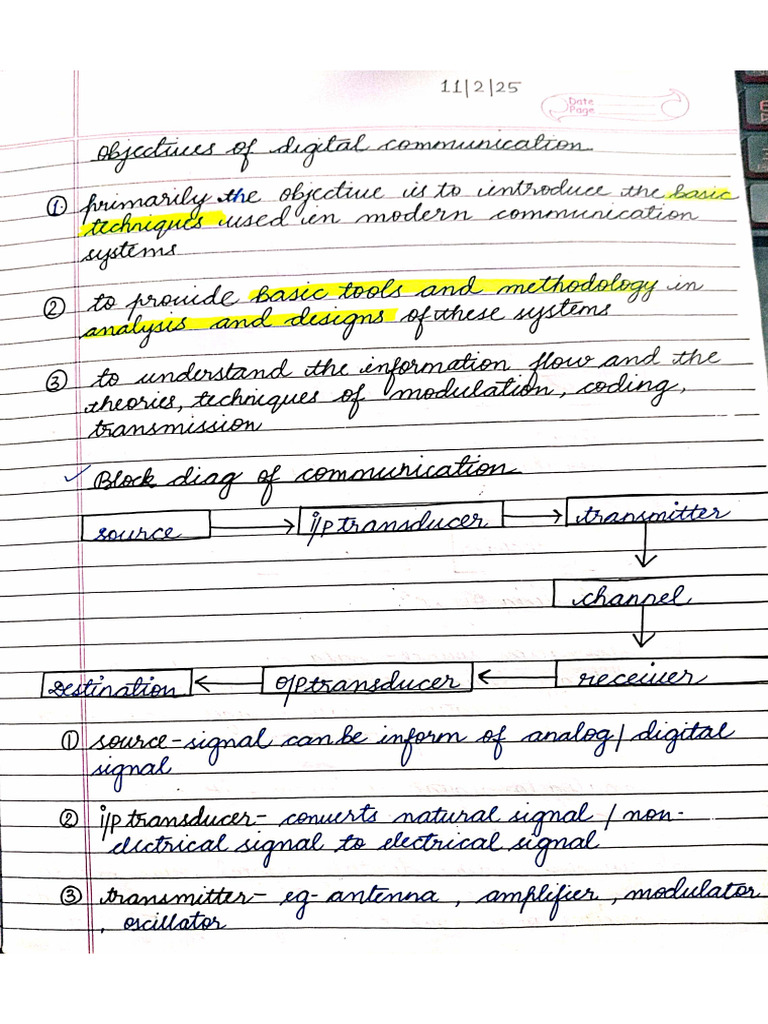 11/2/25
Date
Page
objectives of digital communication
① primarily the objective is to introduce the basic
techniques used in modern communication
systems
② to provide basic tools and methodology in
analysis and designs of these systems
③ to understand the information flow and the
theories, techniques of modulation, coding,
transmission
✓ Block diag of communication
source → i/p transducer → transmitter
channel
Destination ← o/p transducer ← receiver
① source - signal can be inform of analog / digital
signal
② i/p transducer - converts natural signal / non-
electrical signal to electrical signal
③ transmitter - eg - antenna, amplifier, modulator
, oscillator